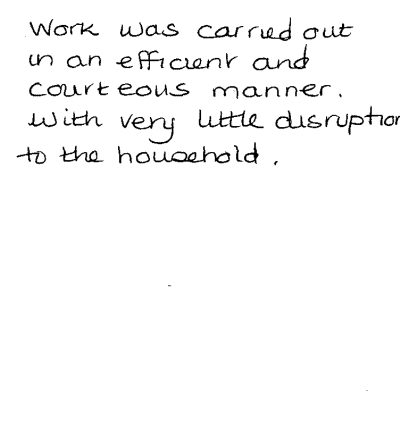 Work was carried out
in an efficient and
courteous manner.
With very little disruption
to the household.